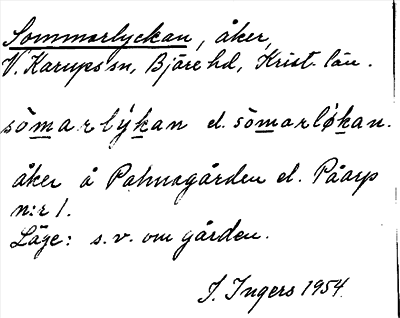 Sommarlyckan, åker,
V. Karups sn, Bjäre hd, Krist. län.
sömarlýkan el. sömarløkan.
åker å Palmagården el. Påarp
n:r 1.
Läge: s.v. om gården.
I. Ingers 1954.